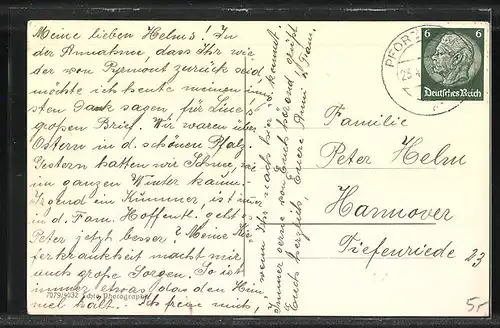 Meine lieben Helms! In
der Annahme, dass Ihr wie
der von Pyrmont zurück seid,
möchte ich heute meinen inni
sten Dank sagen, für Lines
großen Brief. Wir waren über
Ostern in d. schönen Pfalz.
Gestern hatten wir Schnee, wie
im ganzen Winter kaum.
Irgend ein Kummer, ist immer
in d. Fam. Hoffentl. geht es
Peter jetzt besser? Meine
ferkrankheit macht mir
auch große Sorgen. So ist
immer etwas, das den Him
mel hält. Ich freue mich,
wenn Ihr nach hier kommt.
Immer gerne von Euch hörend grüßt
Euch herzlich, Eure Anni
7079/4032 Echte Photographie
PFOR
6 6
Deutsches Reich
Familie
Peter Helm
Hannover
Tiefenriede 23